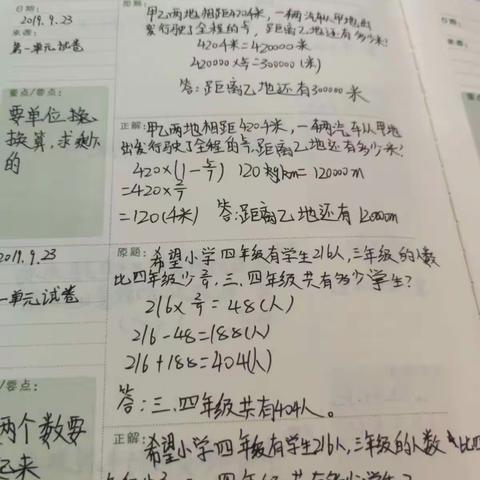 日期:
2019.9.23
来源:
第一单元试卷
原题:
甲乙两地相距420千米,一辆汽车从甲地出
发行驶了全程的5/7,距离乙地还有多少米?
420千米=420000米
420000×5/7=300000(米)
答:距离乙地还有300000米
要点/考点:
要单位换
换算,求剩下
的
正解:甲乙两地相距420千米,一辆汽车从甲地
出发行驶了全程的5/7,距离乙地还有多少米?
420×(1-5/7) 120km=120000m
=420×2/7
=120(千米) 答:距离乙地还有120000m
2019.9.23
一单元试卷
原题:希望小学四年级有学生216人,三年级的人数
比四年级少2/9,三、四年级共有多少学生?
216×2/9=48(人)
216-48=188(人)
216+188=404(人)
答:三、四年级共有404人。
/考点:
两个数要
来
正解:希望小学四年级有学生216人,三年级的人数比四